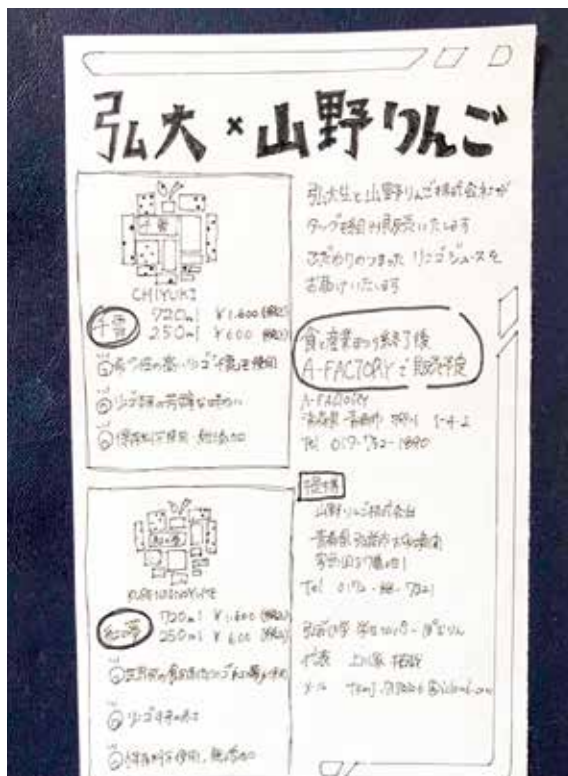 弘大×山野りんご
千雪
CHIYUKI
千雪
720ml ¥1,600(税込)
250ml ¥600(税込)
希少性の高いリンゴ千雪を使用
リンゴ本来の芳醇な味わい
保存料不使用 無添加
紅の夢
KURENAINOYUME
紅の夢
720ml ¥1,600(税込)
250ml ¥600(税込)
リンゴ
保存料不使用、無添加
弘大生と山野りんご株式会社が
タッグを組み販売いたします
こだわりのつまった リンゴジュースを
お届けいたします
食と産業まつり終了後
A-FACTORYで販売予定
A-FACTORY
青森県 青森市 柳川 1-4-2
Tel 017-752-1890
提携
山野りんご株式会社
青森県弘前市大字
Tel 0172-
弘前大学 学生
代表
メール